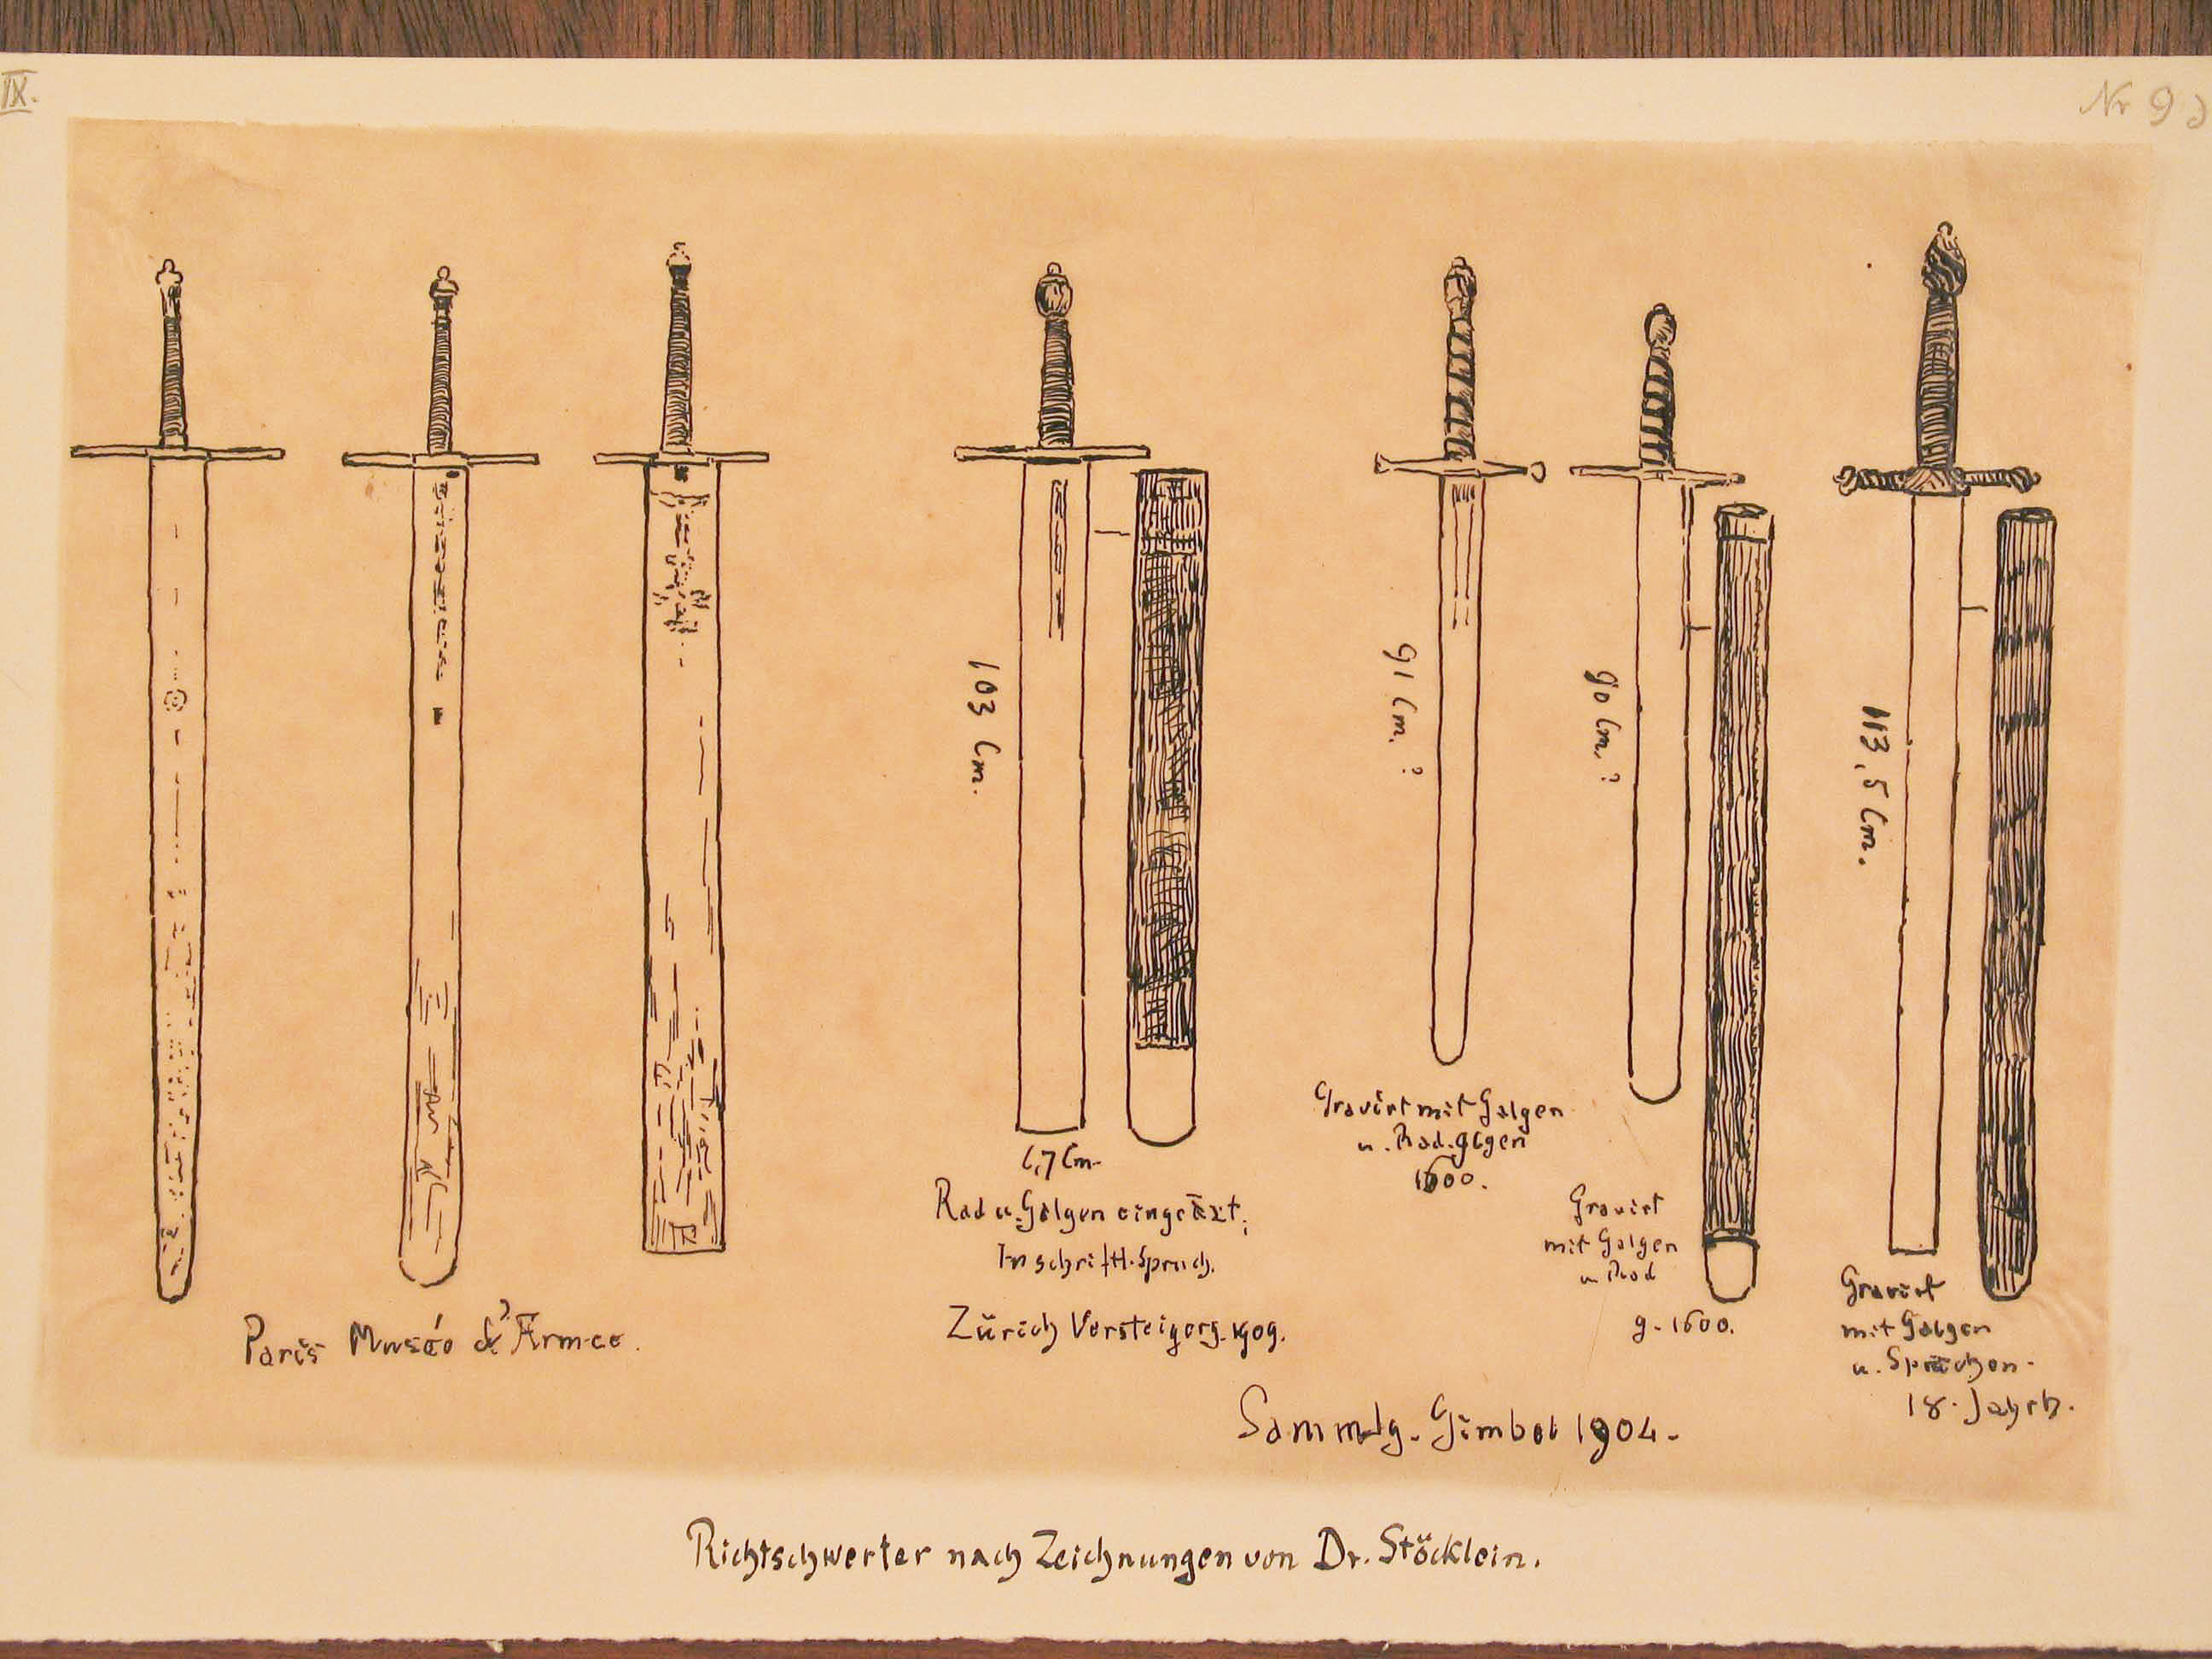 IX.
Nr 9
103 Cm.
91 Cm. ?
90 Cm. ?
113,5 Cm.
6,7 Cm.
Rad u. Galgen eingeäzt;
Inschrift. Spruch.
Zürich Versteigerg. 1909.
Gravirt mit Galgen
u. Rad. gegen
1600.
Gravirt
mit Galgen
u. Rad
g. 1600.
Gravirt
mit Galgen
u. Sprüchen.
18. Jahrh.
Paris Musée d'Armee.
Sammlg. Gimbel 1904.
Richtschwerter nach Zeichnungen von Dr. Stöcklein.